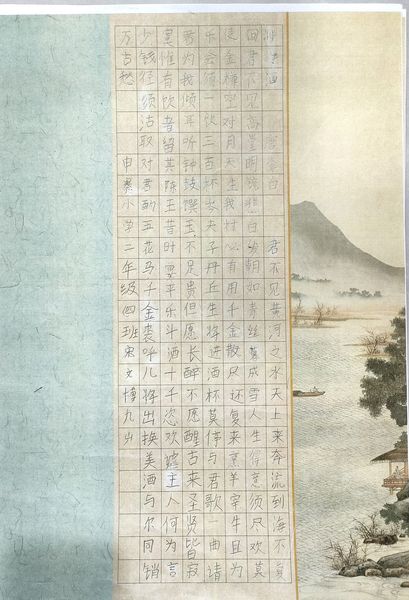 将进酒 李白 君不见黄河之水天上来奔流到海不复
回君不见高堂明镜悲白发朝如青丝暮成雪人生得意须尽欢莫
使金樽空对月天生我材必有用千金散尽还复来烹羊宰牛且为
乐会须一饮三百杯岑夫子丹丘生将进酒杯莫停与君歌一曲请
君为我倾耳听钟鼓馔玉不足贵但愿长醉不愿醒古来圣贤皆寂
寞惟有饮者留其陈王昔时宴平乐斗酒十千恣欢谑主人何为言
少钱径须沽取对君酌五花马千金裘呼儿将出换美酒与尔同销
万古愁 申寨小第二年级四班宋文博九岁